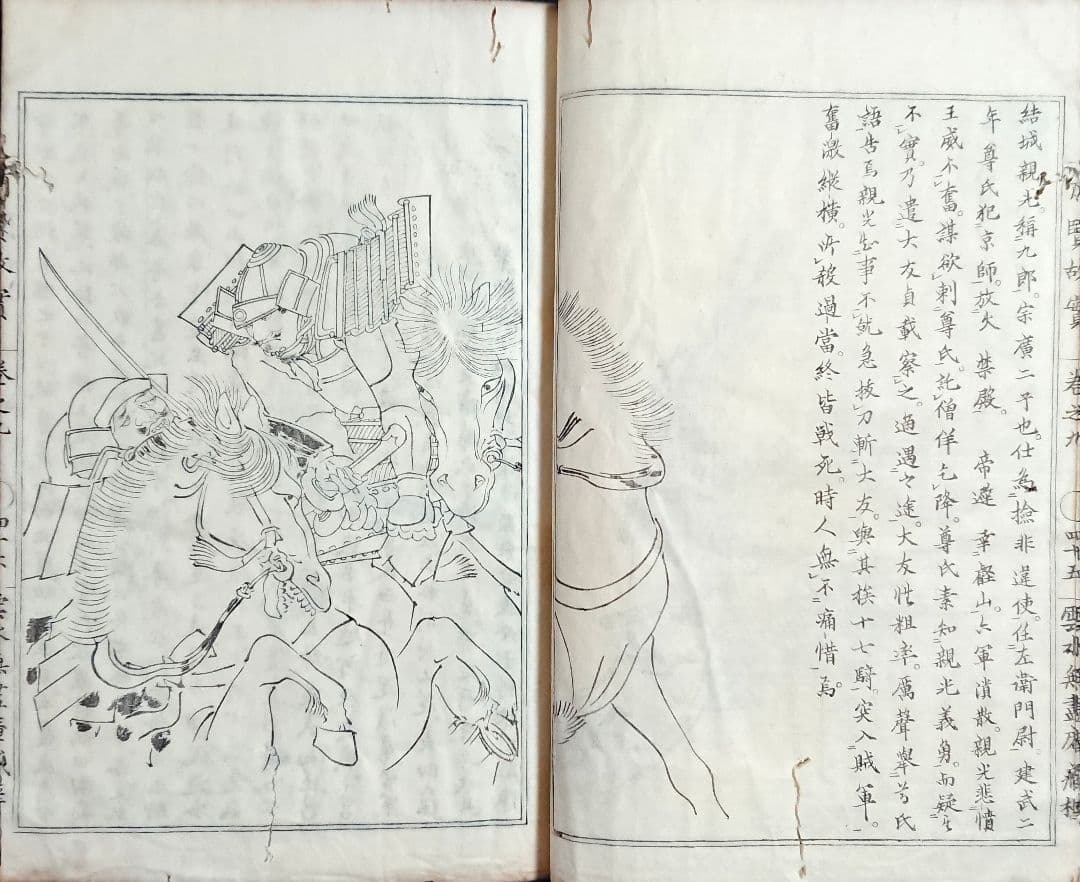 結城親光。稱九郎。宗廣二子也。仕為撿非違使。任左衛門尉。建武二
年尊氏犯京師。放火禁殿。帝遷幸叡山。六軍潰散。親光悲憤
王威不奮。謀欲刺尊氏。託僧佯乞降。尊氏素知親光義勇。而疑其
不實。乃遣大友貞載察之。適遇之途。大友性粗率。厲聲舉兮氏
語告焉親光知事不就急拔刀斬大友。與其族十七騎。突入賊軍。
奮激縱橫。所殺過當。終皆戰死。時人無不痛惜焉。
賢故實 卷之九 四十五 雲水無盡庵藏
賢故實 卷之九 四十六